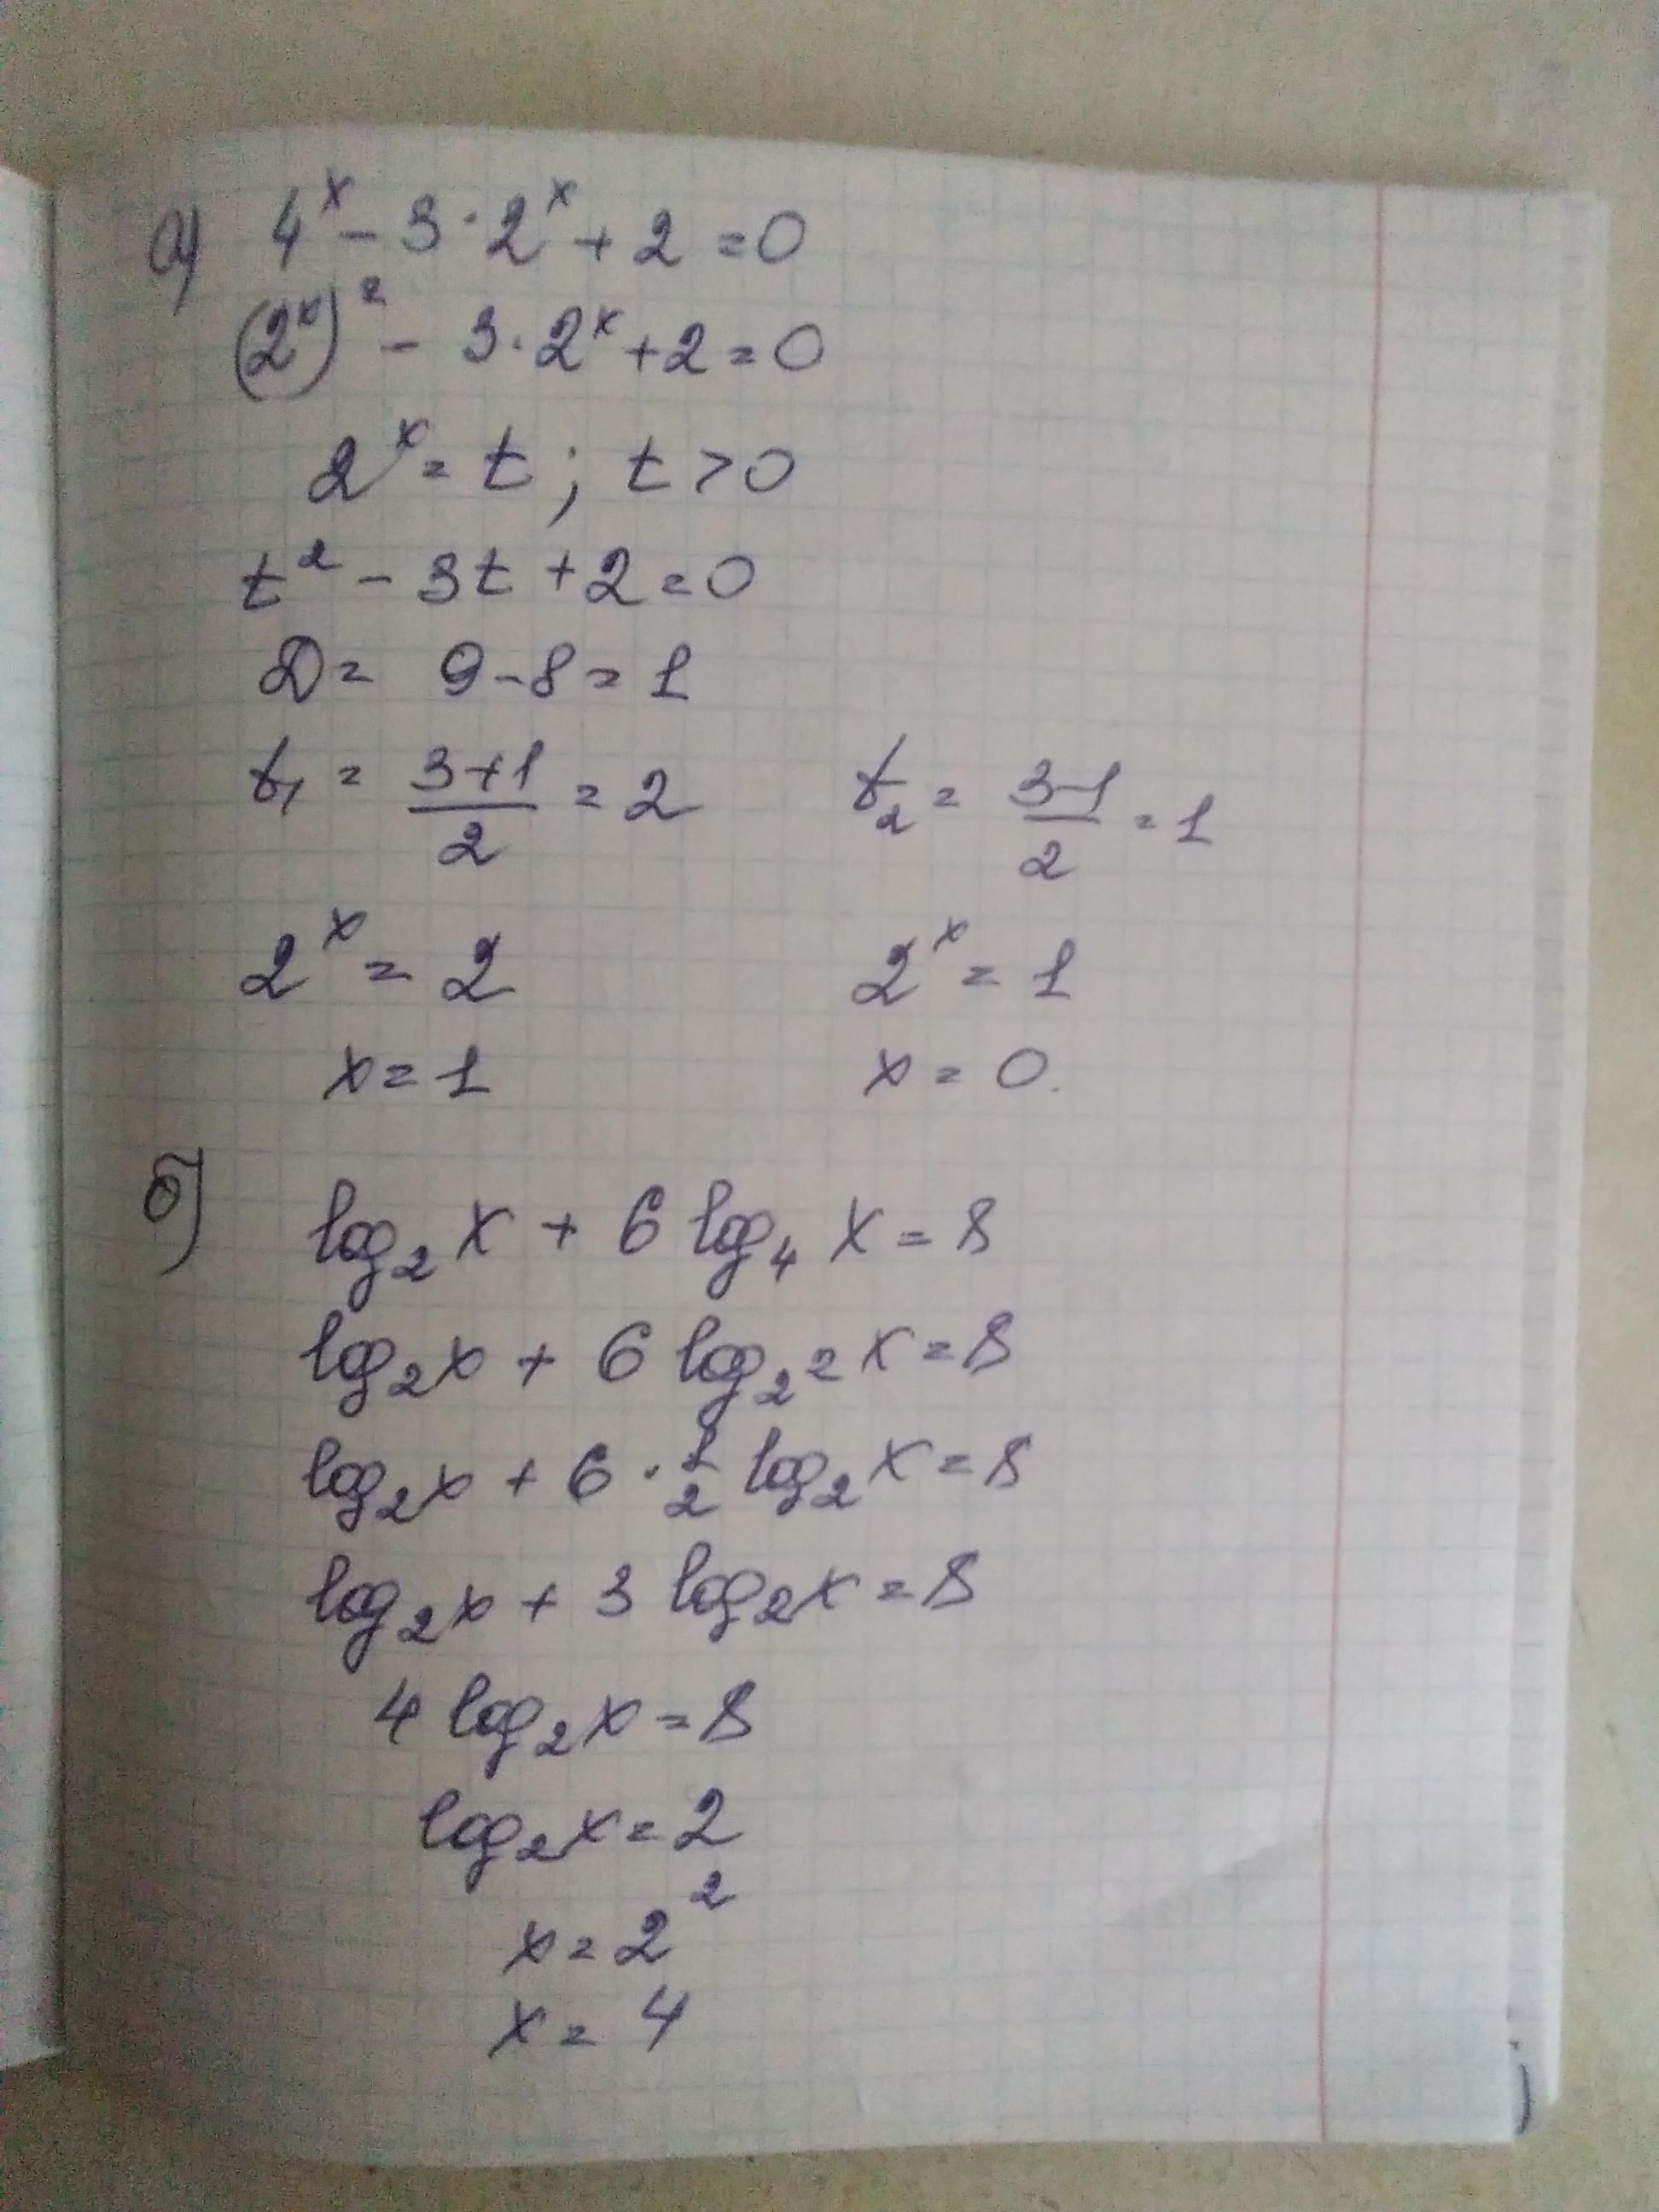 а) 4^x - 3·2^x + 2 = 0
(2^x)^2 - 3·2^x + 2 = 0
2^x = t; t > 0
t^2 - 3t + 2 = 0
D = 9 - 8 = 1
t₁ = (3+1)/2 = 2    t₂ = (3-1)/2 = 1
2^x = 2    2^x = 1
x = 1    x = 0.
б) log₂ x + 6 log₄ x = 8
log₂ x + 6 log_{2^2} x = 8
log₂ x + 6 · 1/2 log₂ x = 8
log₂ x + 3 log₂ x = 8
4 log₂ x = 8
log₂ x = 2
x = 2^2
x = 4